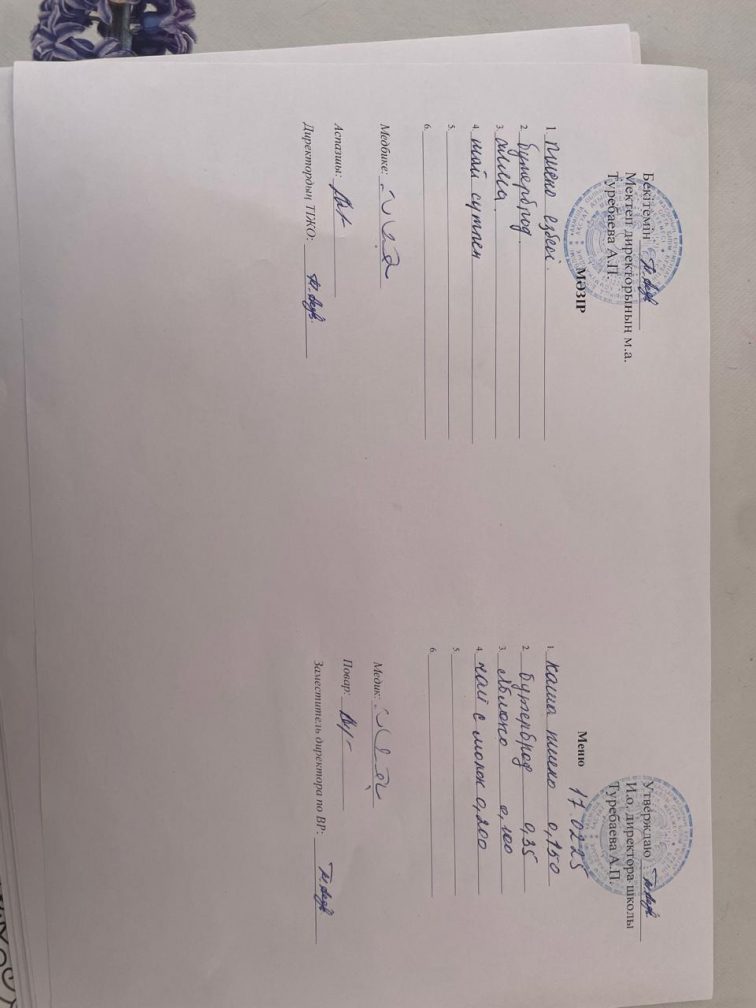 Бекітемін
Мектеп директорының м.а.
Туребаева А.П.
МӘЗІР
1. пшено езбесі
2. бутерброд
3. алма
4. шай сутпен
5.
6.
Медбике:
Аспазшы:
Директордың ТІЖО:
Утверждаю
И.о. директора школы
Туребаева А.П.
Меню 17 02 25
1. каша пшено 0,150
2. Бутерброд 0,35
3. Яблоко 0,100
4. чай с молок 0,200
5.
6.
Медик:
Повар:
Заместитель директора по ВР: